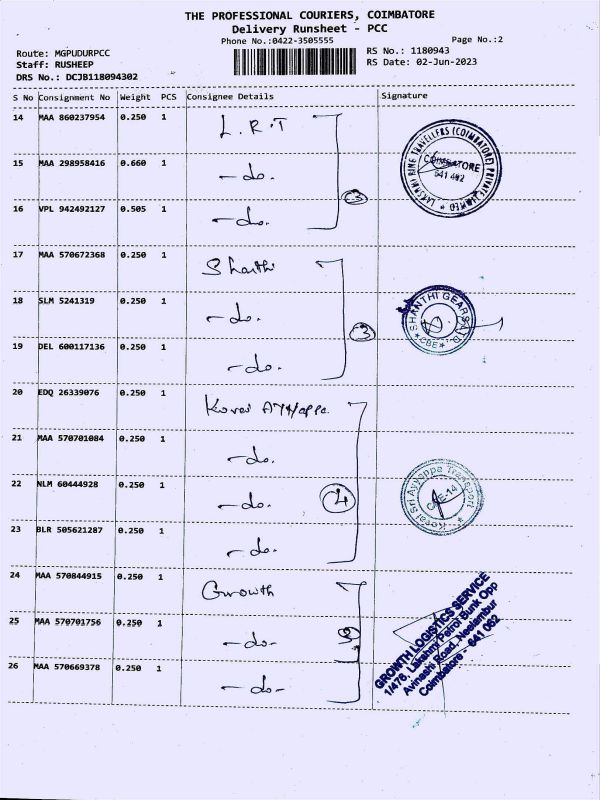 THE PROFESSIONAL COURIERS, COIMBATORE
Delivery Runsheet - PCC
Phone No.:0422-3505555
Page No.:2
Route: MGPUDURPCC
RS No.: 1180943
Staff: RUSHEEP
RS Date: 02-Jun-2023
DRS No.: DCJB118094302
S No Consignment No Weight PCS Consignee Details Signature
14 MAA 860237954 0.250 1 L.R.T
15 MAA 298958416 0.660 1 - do.
16 VPL 942492127 0.505 1 - do.
3
LAKSHMI RING TRAVELLERS (COIMBATORE) PRIVATE LIMITED
COIMBATORE
641 402
17 MAA 570672368 0.250 1 Shanthi
18 SLM 5241319 0.250 1 - do.
19 DEL 600117136 0.250 1 - do.
3
SHANTHI GEARS LTD.
* CBE *
20 EDQ 26339076 0.250 1 Kovai
21 MAA 570701084 0.250 1 - do.
22 NLM 60444928 0.250 1 - do.
23 BLR 505621287 0.250 1 - do.
4
Kovai Sri Ayyappa Transport
CBE-14
24 MAA 570844915 0.250 1 Growth
25 MAA 570701756 0.250 1 - do -
26 MAA 570669378 0.250 1 - do -
GROWTH LOGISTICS SERVICE
1/476, Lakshmi Patrol Bunk Opp
Avinashi Road, Neelambur
Coimbatore - 641 062